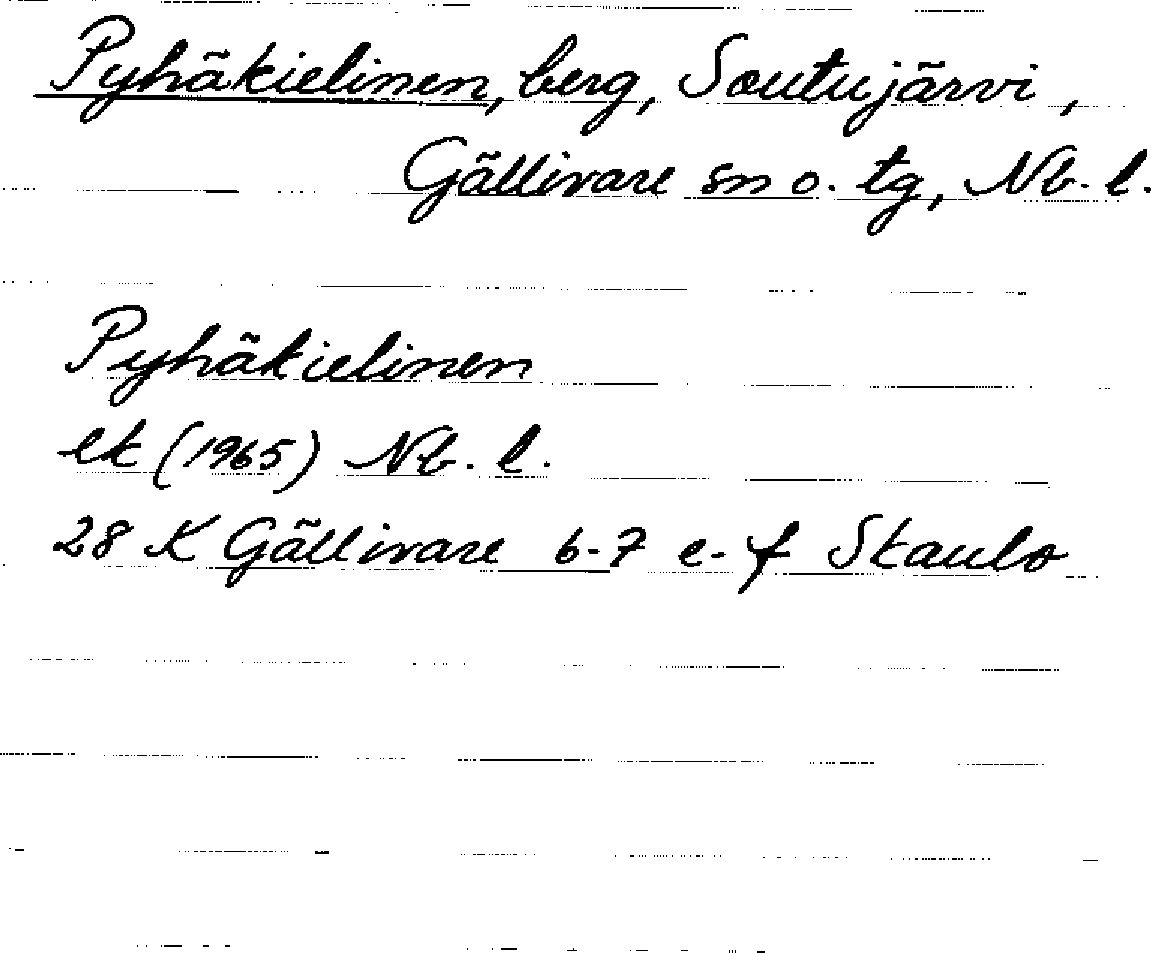 Pyhäkielinen, berg, Soutujärvi,
Gällivare sn o. tg, Nb. l.
Pyhäkielinen
ek (1965) Nb. l.
28 K Gällivare 6-7 e-f Skaulo